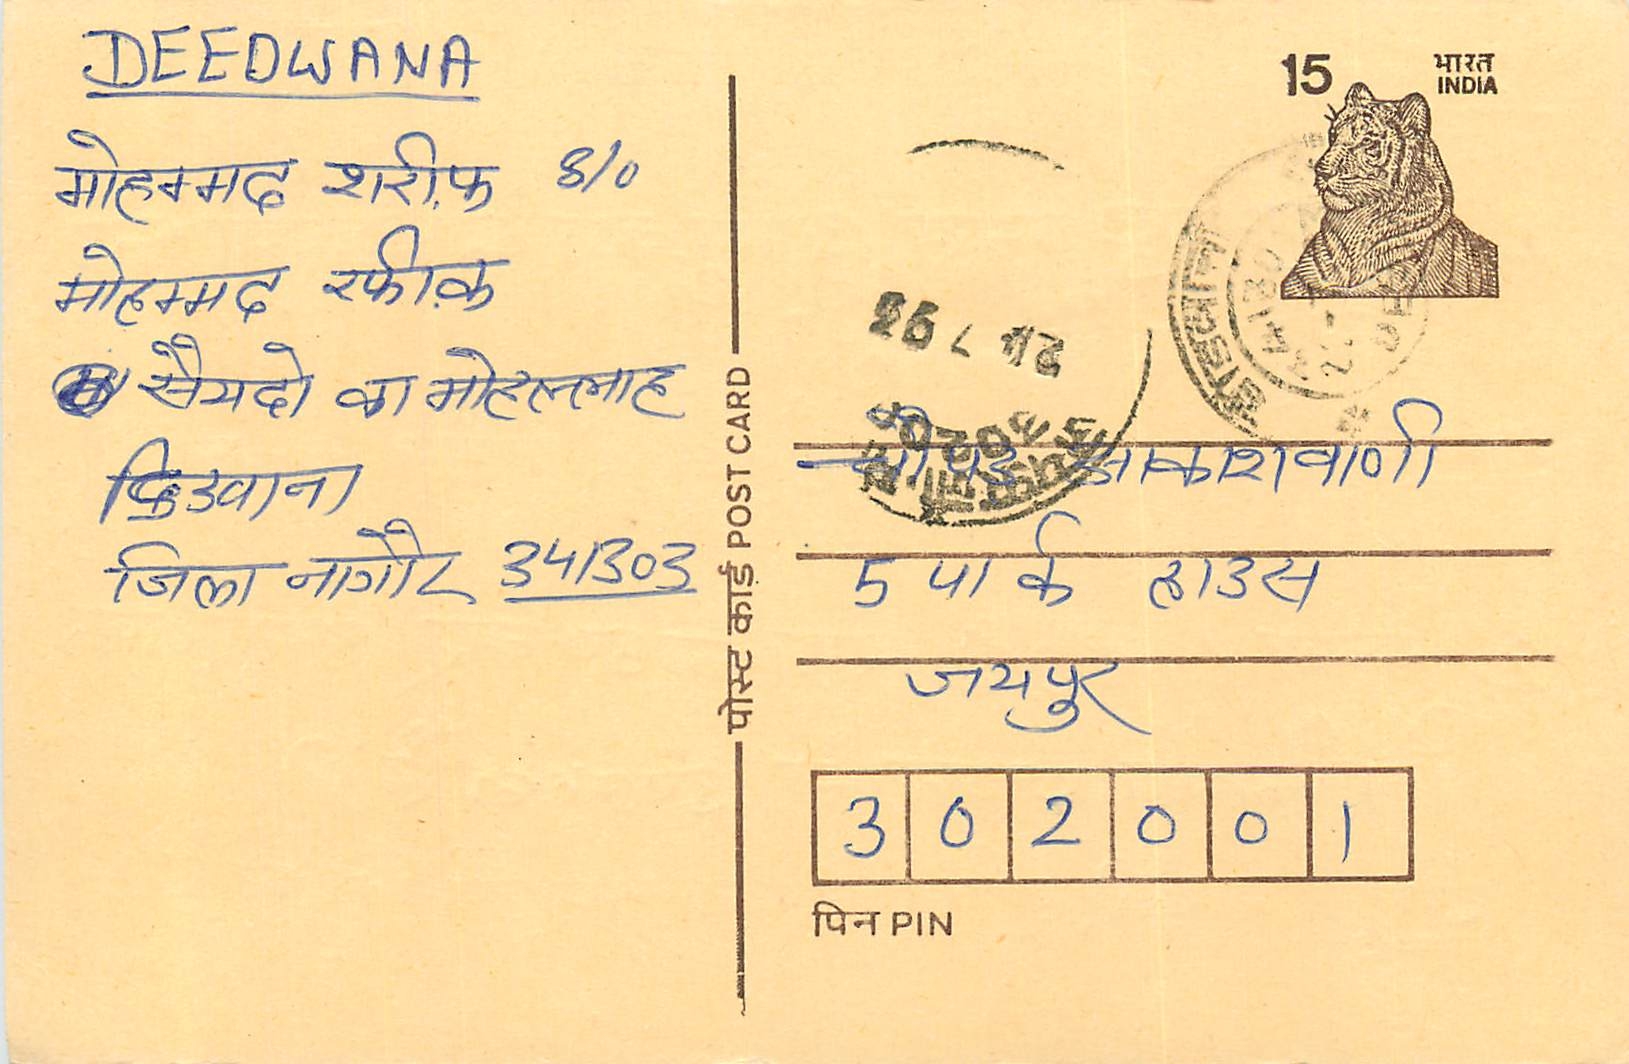 DEEDWANA
मोहम्मद शरीफ़ S/o
मोहम्मद रफीक़
सैयदो का मोहल्लाह
डिडवाना
जिला नागौर 341303
पोस्ट कार्ड POST CARD
15 भारत
INDIA
आकाशवाणी
5 पार्क हाउस
जयपुर
302001
पिन PIN